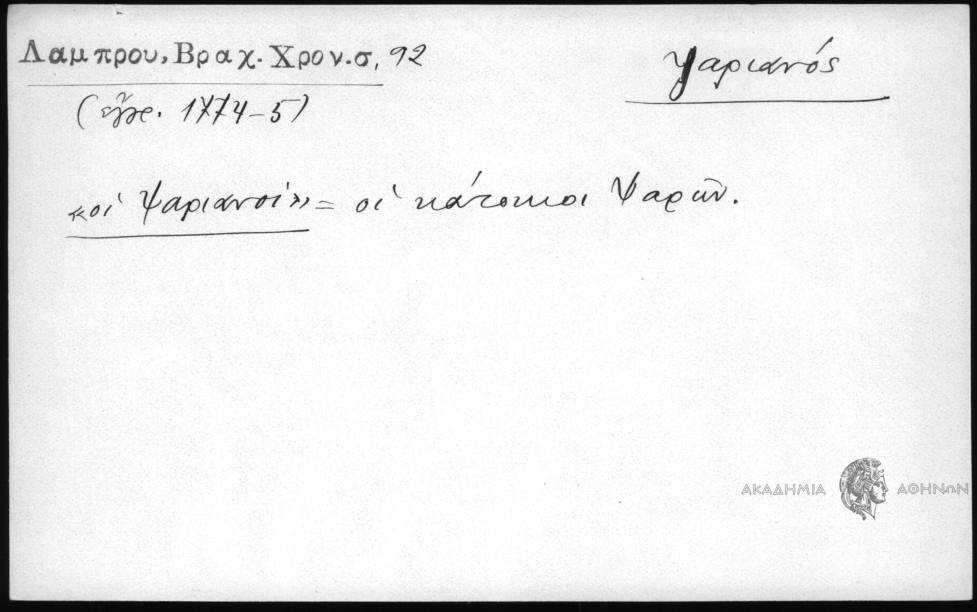 Λαμπρου, Βραχ. Χρον. σ. 92
Ψαριανός
(ἔγγρ. 1774-5)
«οἱ Ψαριανοί» = οἱ κάτοικοι Ψαρῶν.
ΑΚΑΔΗΜΙΑ ΑΘΗΝΩΝ